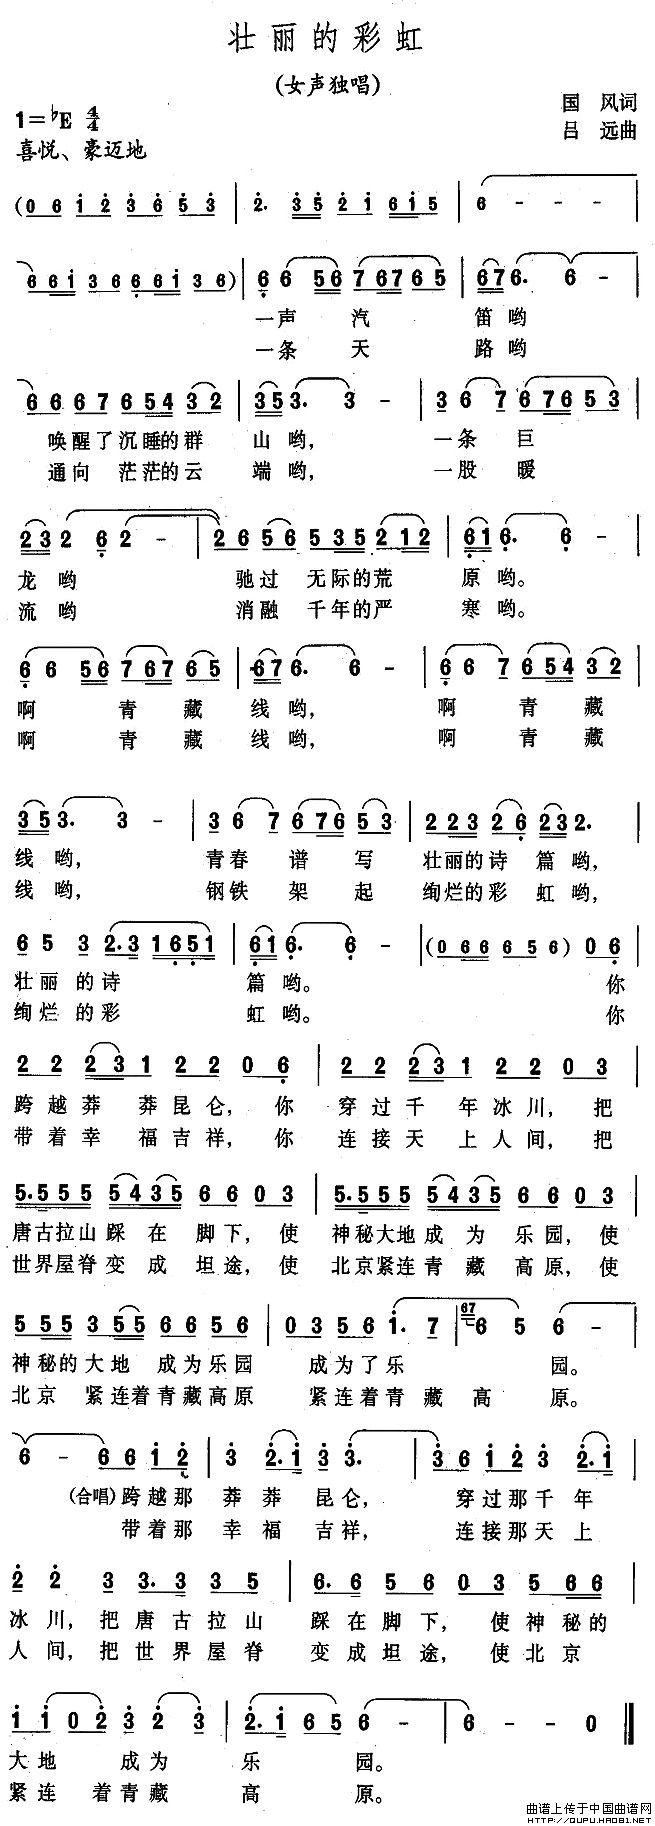 壮丽的彩虹
(女声独唱)
国 风词
1=♭E 4/4
吕 远曲
喜悦、豪迈地
一声 汽 笛哟
一条 天 路哟
唤醒了沉睡的群 山哟, 一条 巨
通向 茫茫的云 端哟, 一股 暖
龙 哟 驰过 无际的荒 原 哟。
流 哟 消融 千年的严 寒 哟。
啊 青 藏 线 哟, 啊 青 藏
啊 青 藏 线 哟, 啊 青 藏
线 哟, 青春 谱 写 壮丽的诗 篇 哟,
线 哟, 钢铁 架 起 绚烂的彩 虹 哟,
壮 丽 的 诗 篇 哟。 你
绚 烂 的 彩 虹 哟。 你
跨 越 莽 莽 昆 仑, 你 穿 过 千 年 冰 川, 把
带 着 幸 福 吉 祥, 你 连 接 天 上 人 间, 把
唐古拉山 踩 在 脚 下, 使 神秘大地 成 为 乐 园, 使
世界屋脊 变 成 坦 途, 使 北京紧连 青 藏 高 原, 使
神秘的 大 地 成 为 乐 园 成 为 了 乐 园。
北 京 紧 连 着 青 藏 高 原 紧 连 着 青 藏 高 原。
(合唱) 跨 越 那 莽 莽 昆 仑, 穿 过 那 千 年
带 着 那 幸 福 吉 祥, 连 接 那 天 上
冰 川, 把 唐 古 拉 山 踩 在 脚 下, 使 神 秘 的
人 间, 把 世 界 屋 脊 变 成 坦 途, 使 北 京
大 地 成 为 乐 园。
紧 连 着 青 藏 高 原。
曲谱上传于中国曲谱网
HTTP://QUPU.HAO81.NET